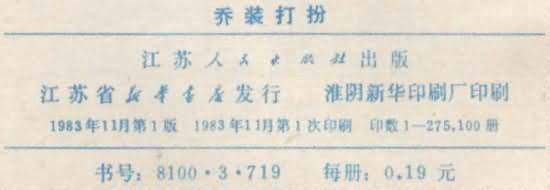 乔装打扮
江苏人民出版社出版
江苏省新华书店发行 淮阴新华印刷厂印刷
1983年11月第1版 1983年11月第1次印刷 印数1—275,100册
书号:8100·3·719 每册:0.19元